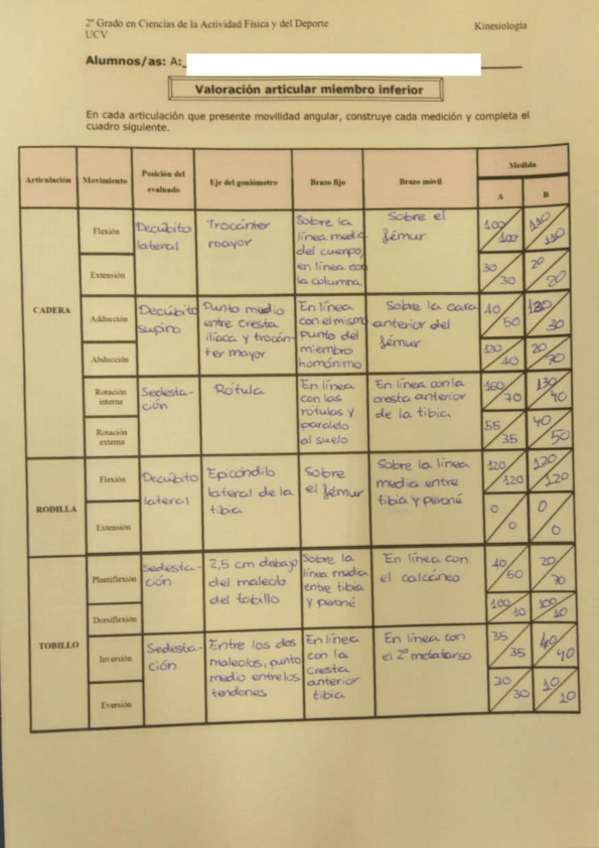 2º Grado en Ciencias de la Actividad Física y del Deporte Kinesiología
UCV
Alumnos/as: A:
Valoración articular miembro inferior
En cada articulación que presente movilidad angular, construye cada medición y completa el
cuadro siguiente.
Articulación Movimiento Posición del evaluado Eje del goniómetro Brazo fijo Brazo móvil Medida
A B
CADERA
Flexión
Extensión
Decúbito
lateral
Trocánter
mayor
Sobre la
línea media
del cuerpo,
en línea con
la columna
Sobre el
fémur
100/100 110/110
30/30 20/20
Adducción
Abducción
Decúbito
supino
Punto medio
entre cresta
ilíaca y trocán-
ter mayor
En línea
con el mismo
punto del
miembro
homónimo
Sobre la cara
anterior del
fémur
40/50 /30
/40 20/
Rotación
interna
Rotación
externa
Sedesta-
ción
Rótula
En línea
con las
rótulas y
paralelo
al suelo
En línea con la
cresta anterior
de la tibia
/70 /40
55/35 40/50
RODILLA
Flexión
Extensión
Decúbito
lateral
Epicóndilo
lateral de la
tibia
Sobre
el fémur
Sobre la línea
media entre
tibia y peroné
120/120 120/120
0/0 0/0
TOBILLO
Plantiflexión
Dorsiflexión
Sedesta-
ción
2,5 cm debajo
del maleolo
del tobillo
Sobre la
línea media
entre tibia
y peroné
En línea con
el calcáneo
40/50 20/
100/10 100/10
Inversión
Eversión
Sedesta-
ción
Entre los dos
maleolos, punto
medio entre los
tendones
En línea
con la
cresta
anterior
tibia
En línea con
el 2º metatarso
35/35 40/40
30/30 10/10